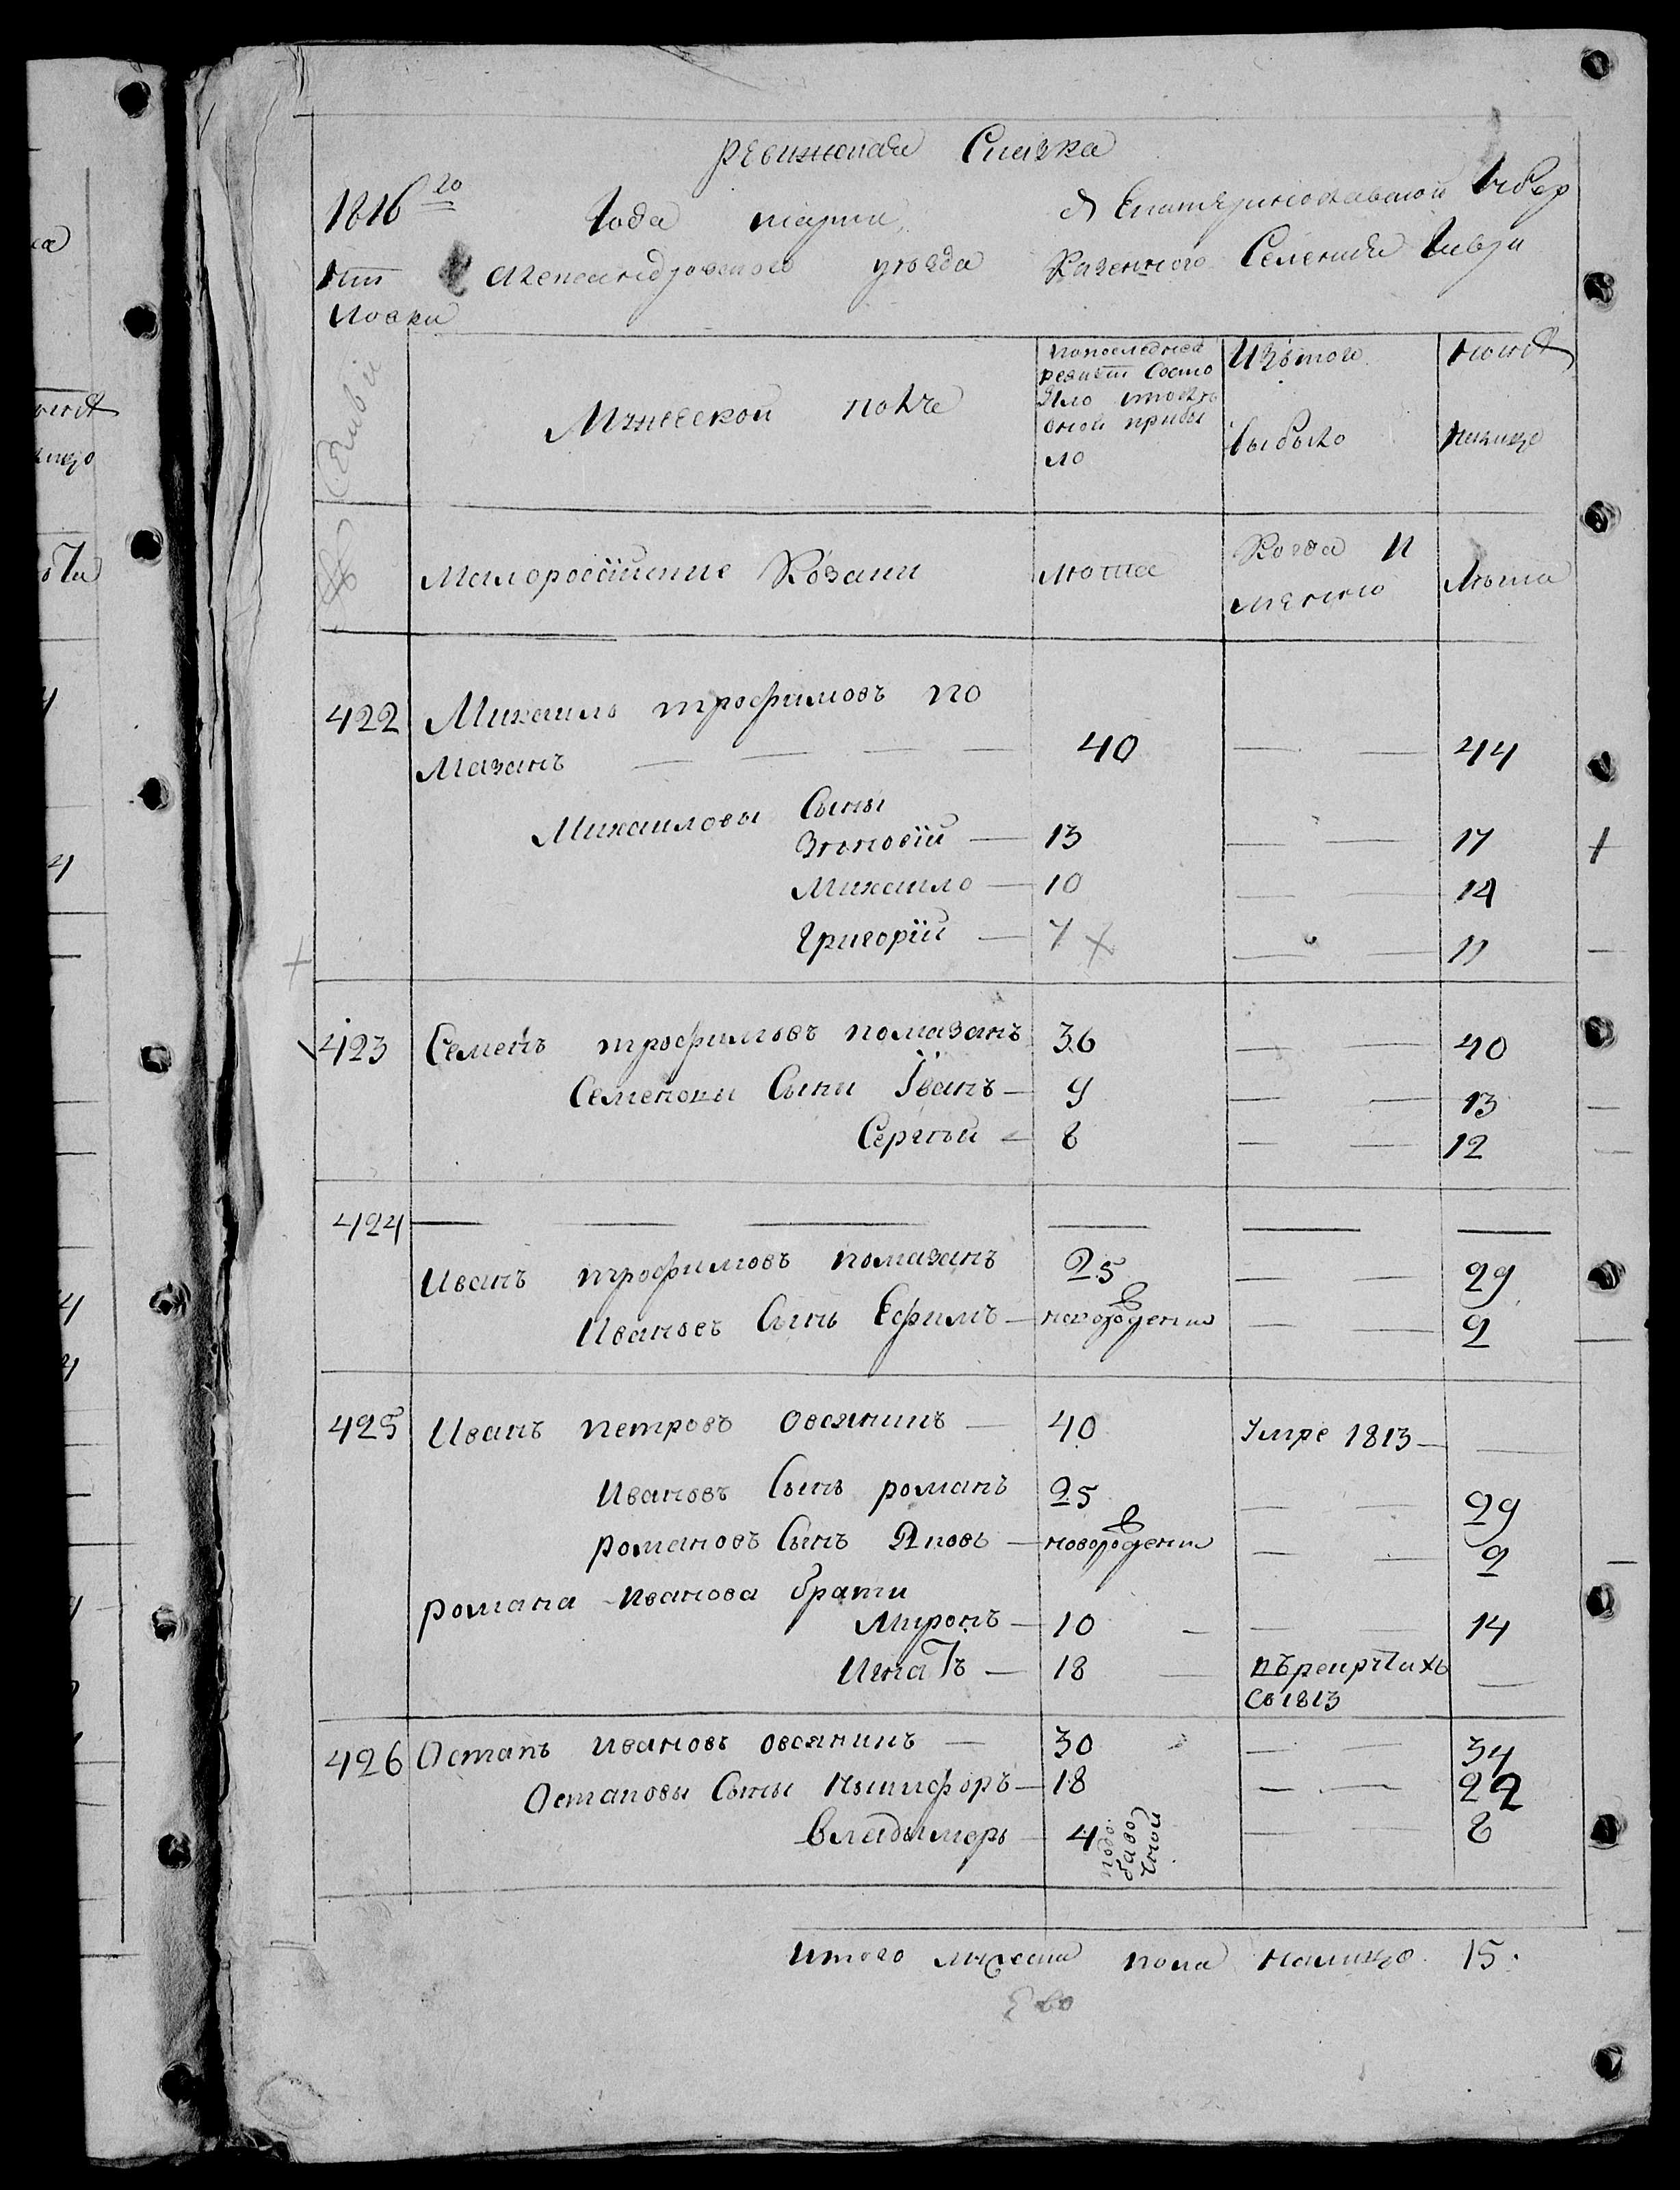 ревижская Сказка
1816го Года марта Екатеринославской Губер
нии александровского уезда Казенного Селения Гаври
ловки
Семьи Мужескои полъ
попоследней ревизии Состо яло ипослѣ оной прибы ло
Изътого выбыло
ныне налицо
Малоросѣйские Козаки
лѣта
Когда И
менно
Лѣта
422 Михаилъ трофимовъ по
мазанъ — — — — 40 — — 44
Михаиловы Сыны
Зѣновій — 13 — — 17
Михаило — 10 — — 14
Григорій — 7 — — 11
423 Семенъ трофимовъ помазанъ 36 — — 40
Семеновы Сыни Іванъ — 9 — — 13
Сергѣй — 8 — — 12
424 — — — — — —
Иванъ трофимовъ помазанъ 25 — — 29
Ивановъ Сынъ Ефимъ — новорожденни — — 2
425 Иванъ петровъ овсянинъ — 40 Умре 1813 — —
Ивановъ Сынъ романъ 25 — — 29
романовъ Сынъ Яковъ — новорожденни — — 2
романа Иванова брати
Миронъ — 10 — — — 14
Игнатъ — 18 —
Св 1813 —
426 Остапъ Ивановъ овсянинъ — 30 — — 34
Остаповы Сыны Никифоръ — 18 — — 22
Владымеръ — 4 подо баво чной — — 8
Итого мужеска пола налицо 15.